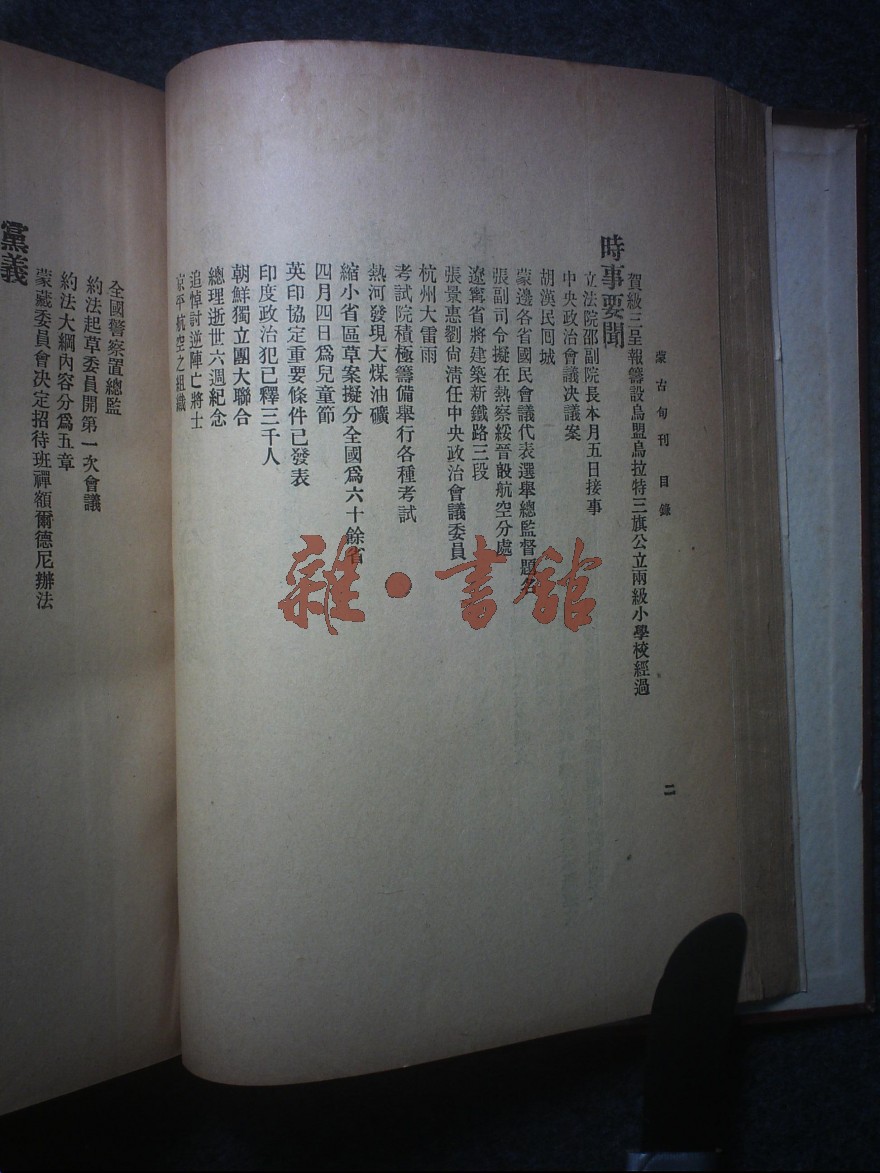 蒙古旬刊 目錄
二
賀級三呈報籌設烏盟烏拉特三旗公立兩級小學校經過
時事要聞
立法院邵副院長本月五日接事
中央政治會議決議案
胡漢民回城
蒙邊各省國民會議代表選舉總監督題名
張副司令擬在熱察綏晉設航空分處
遼寧省將建築新鐵路三段
張景惠劉尙淸任中央政治會議委員
杭州大雷雨
考試院積極籌備舉行各種考試
熱河發現大煤油礦
縮小省區草案擬分全國爲六十餘省
四月四日爲兒童節
英印協定重要條件已發表
印度政治犯已釋三千人
朝鮮獨立團大聯合
總理逝世六週紀念
追悼討逆陣亡將士
京平航空之組織
全國警察置總監
約法起草委員開第一次會議
約法大綱內容分爲五章
蒙藏委員會決定招待班禪額爾德尼辦法
黨義
雜·書館